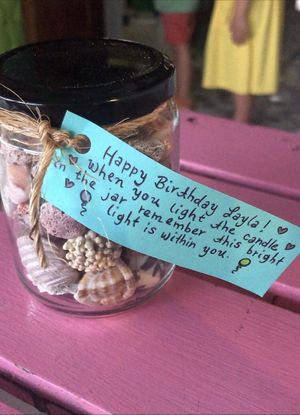 Happy Birthday Layla!
when you light the candle
in the jar remember this bright
light is within you.